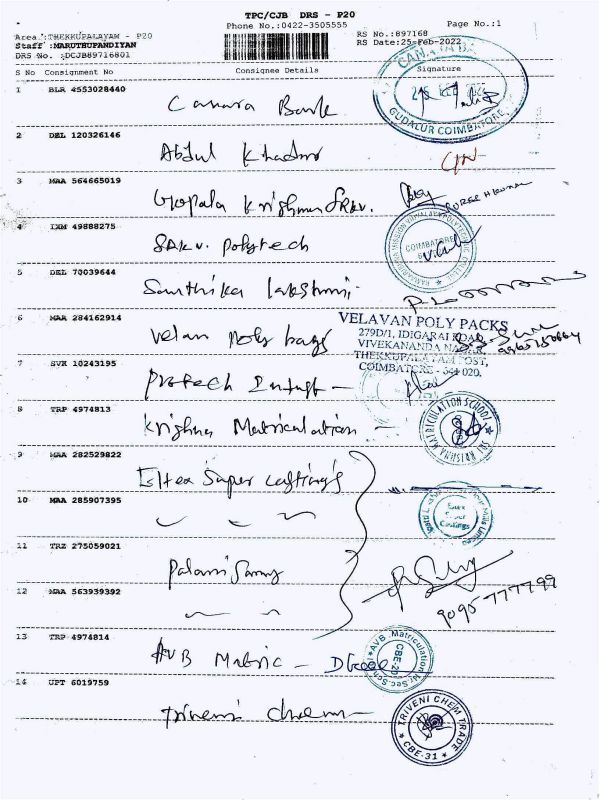 TPC/CJB DRS - P20
Phone No.:0422-3505555 Page No.:1
Area :THEKKUPALAYAM - P20 RS No.:897168
Staff :MARUTHUPANDIYAN RS Date:25-Feb-2022
DRS No. :DCJB89716801
S No Consignment No Consignee Details Signature
1 BLR 4553028440 Canara Bank
CANARA BA
GUDALUR COIMBATORE
2 DEL 120326146 Abdul Khadar
3 MAA 564665019 Gopala Krishnan SRKV.
4 IXM 49888275 SRKV. Polytech
COIMBATORE
5 DEL 70039644 Santhika Lakshmi
6 MAR 284162914 Velan Poly bags
VELAVAN POLY PACKS
279D/1, IDIGARAI ROAD,
VIVEKANANDA NAGAR,
THEKKUPALAYAM POST,
COIMBATORE - 641 020.
7 SVR 10243195 Protech
8 TRP 4974813 Krishna Matriculation
SRI KRISHNA MATRICULATION SCHOOL
9 MAA 282529822 Eltex Super Castings
Super
Castings
10 MAA 285907395
11 TRZ 275059021 Palanisamy
9095777799
12 MAA 563939392
13 TRP 4974814 AVB Matric
AVB Matriculation Hr.Sec.School
CBE-20
14 UPT 6019759 Triveni Chem
TRIVENI CHEM TRADE
CBE-31